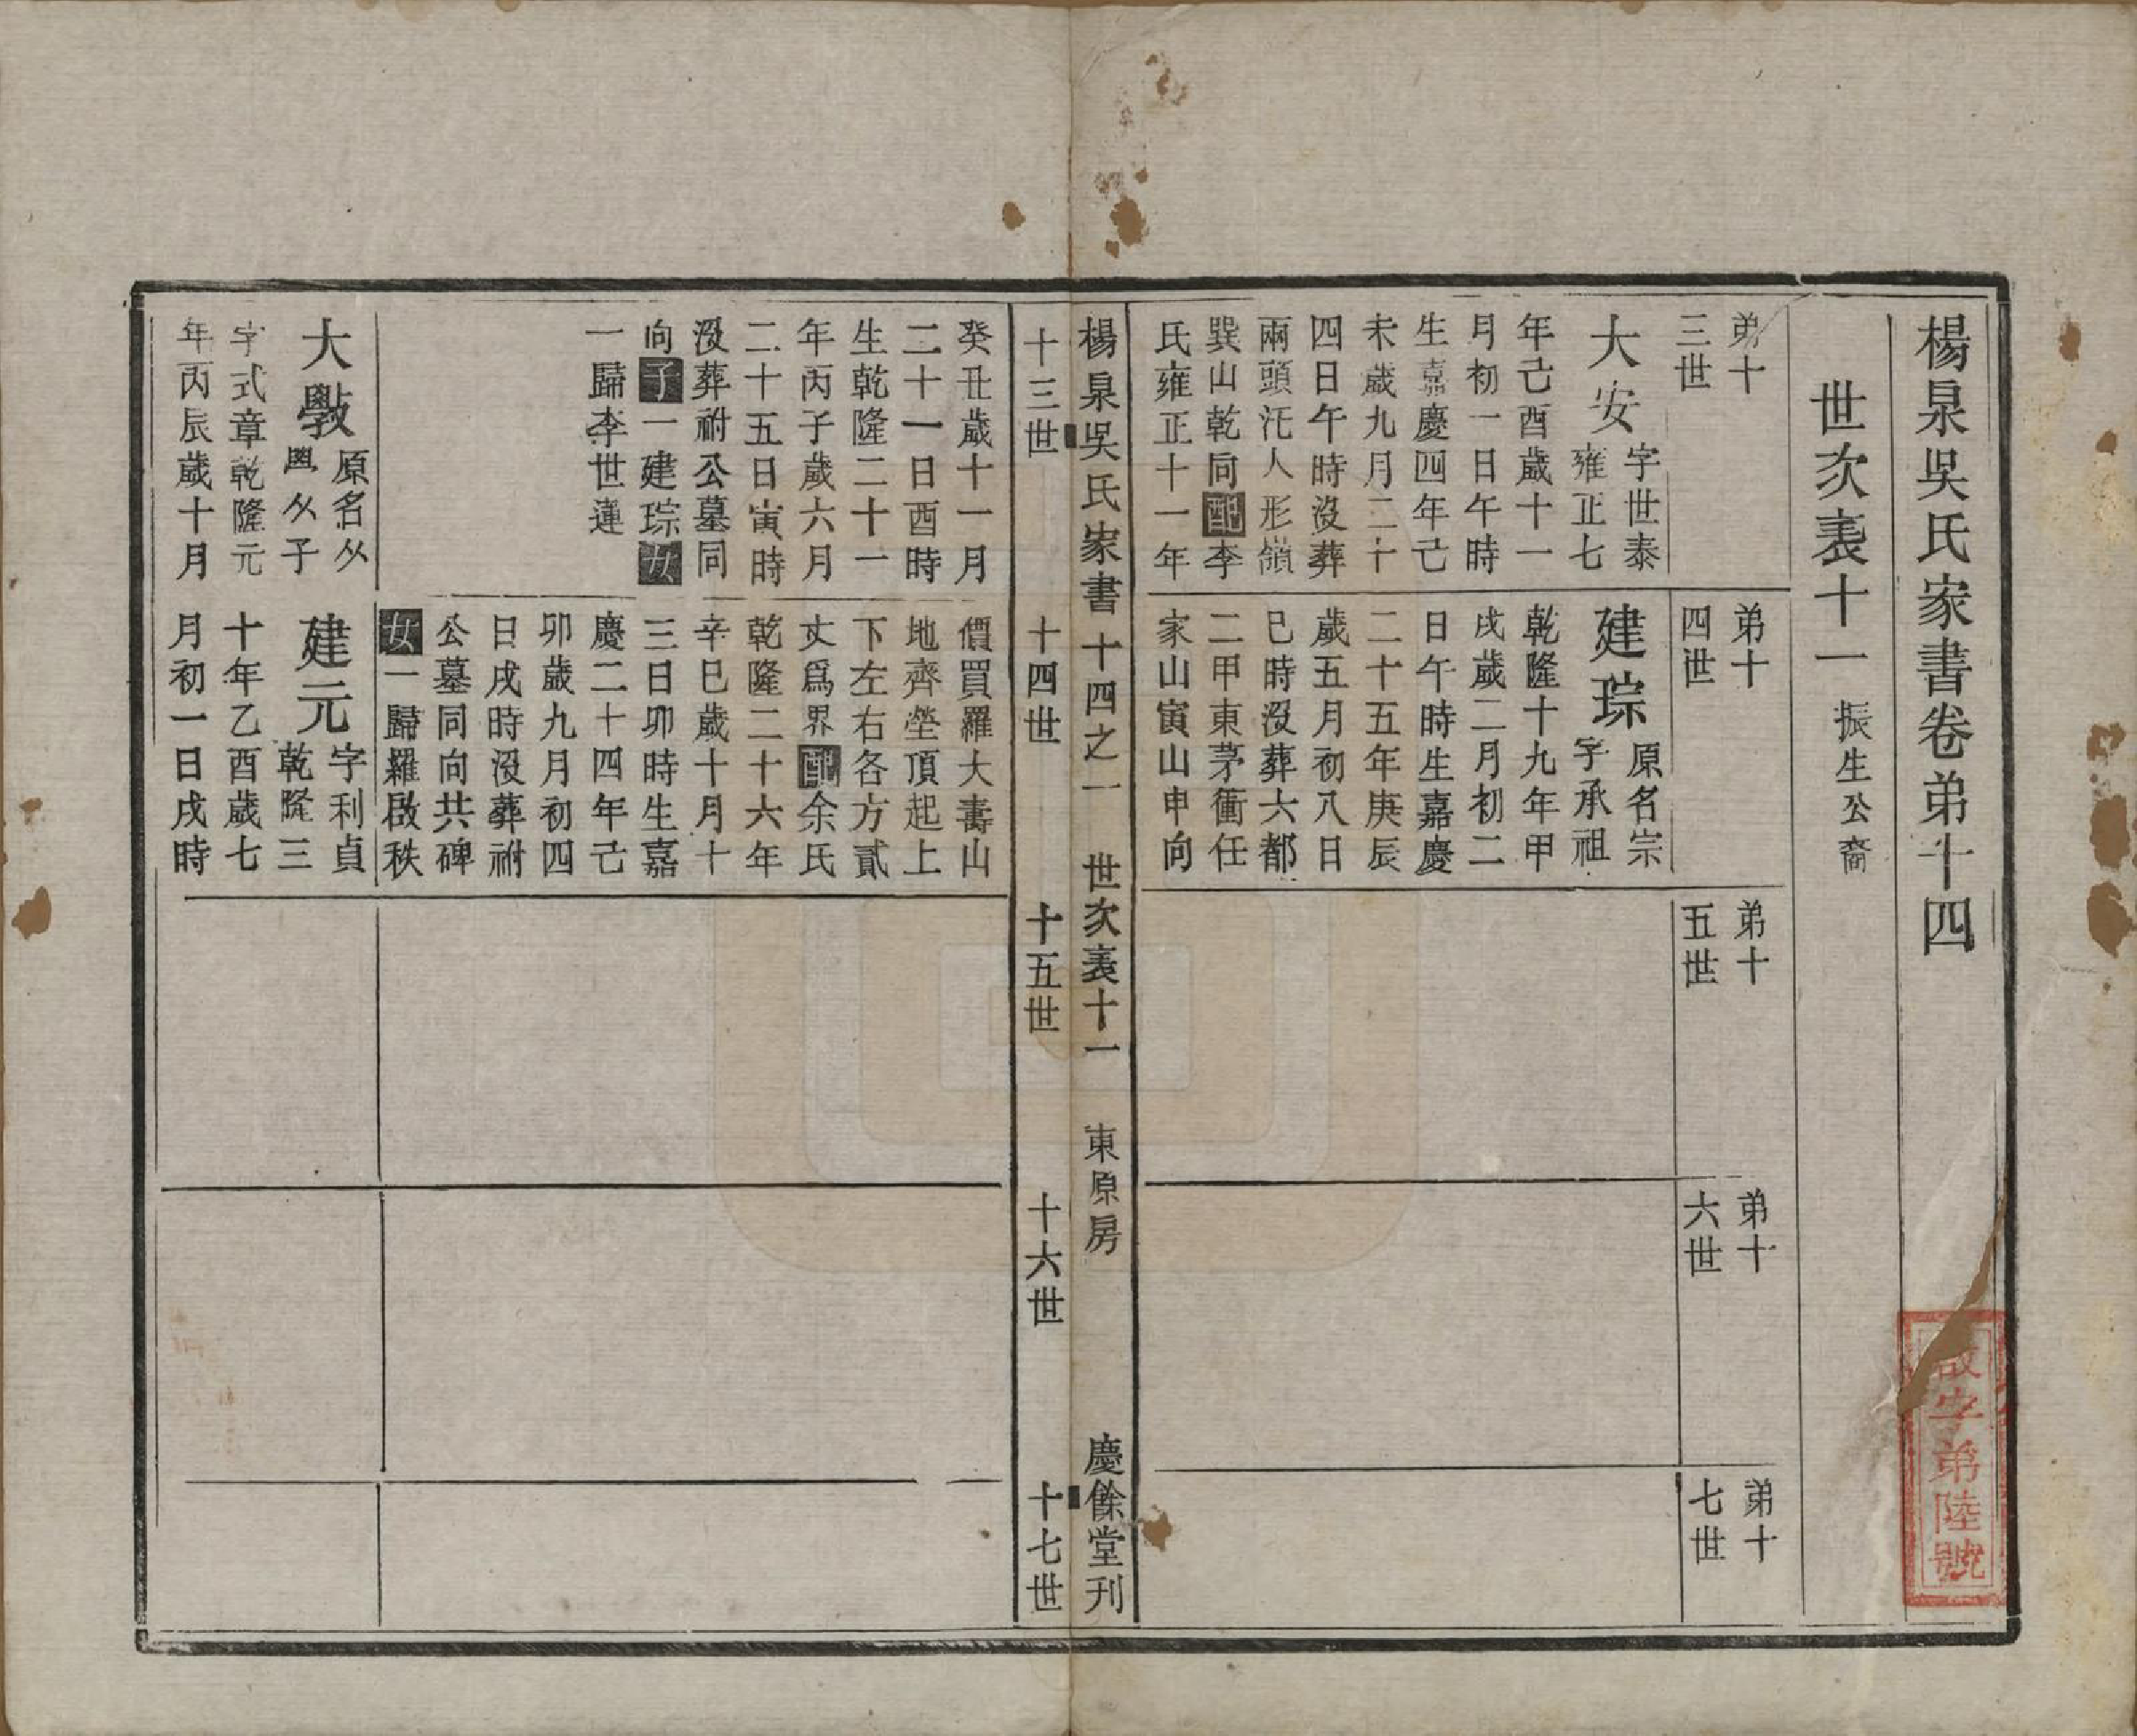 楊泉吳氏家書卷弟十四
世次表十一 振生公裔
弟十三世
大安 字世泰雍正七
年己酉歲十一
月初一日午時
生嘉慶四年己
未歲九月二十
四日午時沒葬
兩頭汑人形嶺
巽山乾向配李
氏雍正十一年
弟十四世
建琮 原名宗字承祖
乾隆十九年甲
戌歲二月初二
日午時生嘉慶
二十五年庚辰
歲五月初八日
巳時沒葬六都
二甲東茅衝任
家山寅山申向
弟十五世
弟十六世
弟十七世
楊泉吳氏家書 十四之一 世次表十一 東原房 慶餘堂刊
十三世 十四世 十五世 十六世 十七世
癸丑歲十一月
二十一日酉時
生乾隆二十一
年丙子歲六月
二十五日寅時
沒葬祔公墓同
向子一建琮女
一歸李世蓮
價買羅大壽山
地齊塋頂起上
下左右各方貳
丈爲界配余氏
乾隆二十六年
辛巳歲十月十
三日卯時生嘉
慶二十四年己
卯歲九月初四
日戌時沒葬祔
公墓同向共碑
女一歸羅啟秩
大斅 原名𠔁𠔁子
字式章乾隆元
年丙辰歲十月
建元 字利貞乾隆三
十年乙酉歲七
月初一日戌時
字弟陸號